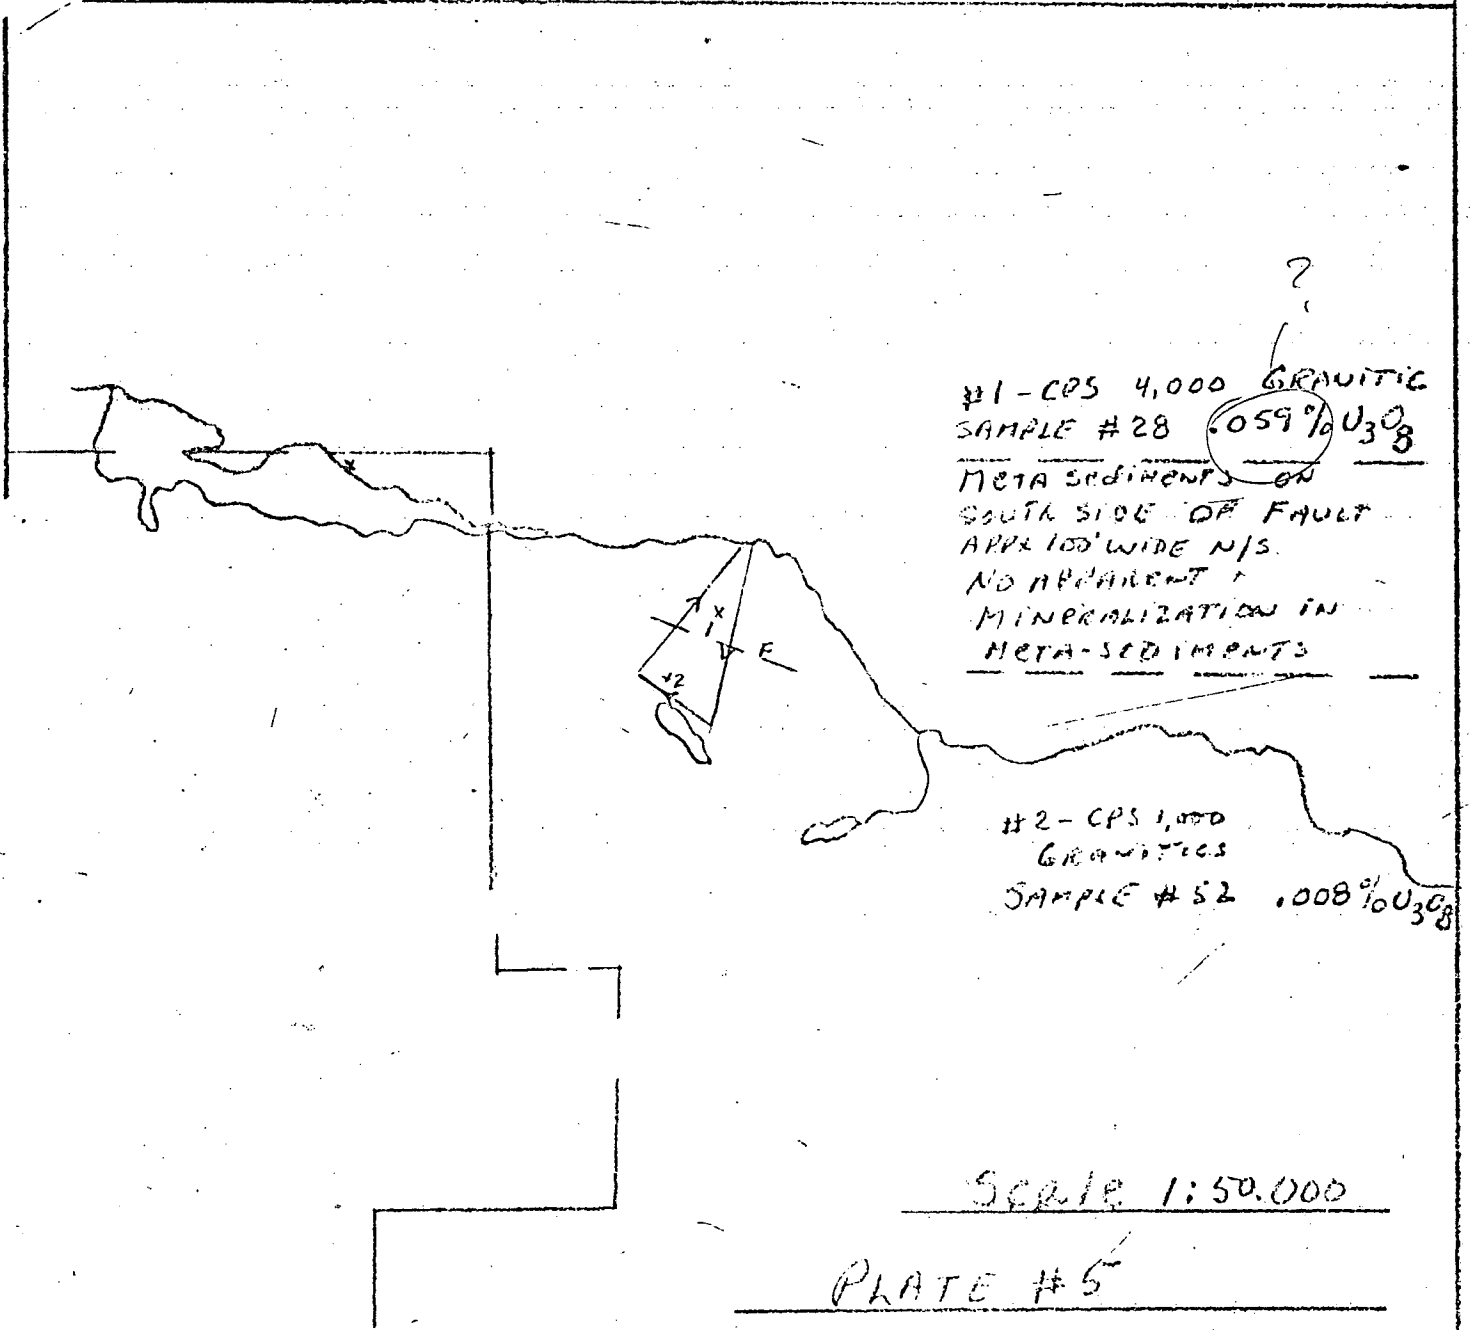 ?
#1 - CPS 4,000 GRANITIC
SAMPLE #28 .059% U3O8
META SEDIMENTS ON
SOUTH SIDE OF FAULT
APPX 100' WIDE N/S.
NO APPARENT
MINERALIZATION IN
META-SEDIMENTS
x
x
1
F
x2
#2 - CPS 1,000
GRANITICS
SAMPLE #52 .008% U3O8
Scale 1:50.000
PLATE #5